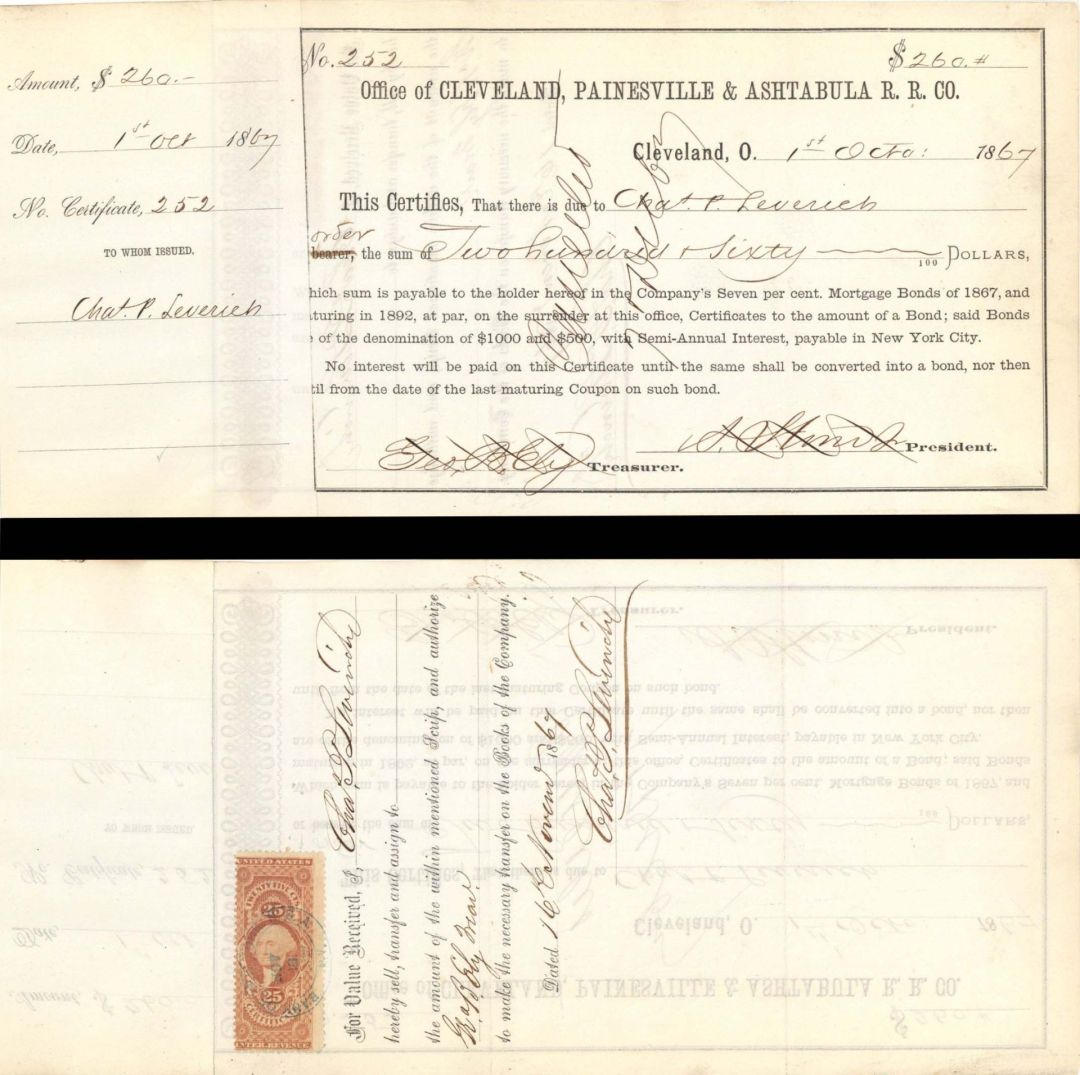 Amount, $ 260.-
Date, 1st Oct 1867
No. Certificate, 252
TO WHOM ISSUED.
Chas. P. Leverich
No. 252 $260.#
Office of CLEVELAND, PAINESVILLE & ASHTABULA R. R. CO.
Cleveland, O. 1st Octo: 1867
This Certifies, That there is due to Chas. P. Leverich
order
bearer, the sum of Two hundred & Sixty 100 DOLLARS,
hich sum is payable to the holder hereof in the Company's Seven per cent. Mortgage Bonds of 1867, and
turing in 1892, at par, on the surrender at this office, Certificates to the amount of a Bond; said Bonds
e of the denomination of $1000 and $500, with Semi-Annual Interest, payable in New York City.
No interest will be paid on this Certificate until the same shall be converted into a bond, nor then
til from the date of the last maturing Coupon on such bond.
Geo. B. Ely Treasurer.
President.
Cancelled
For Value Received, I, Chas. P. Leverich
hereby sell, transfer and assign to
the amount of the within mentioned Scrip, and authorize
Geo B Ely Treas.
to make the necessary transfer on the Books of the Company.
Dated 16 Novem 1867
Chas. P. Leverich
UNITED STATES
TWENTY FIVE CENTS
25 25
CERTIFICATE
INTER. REVENUE